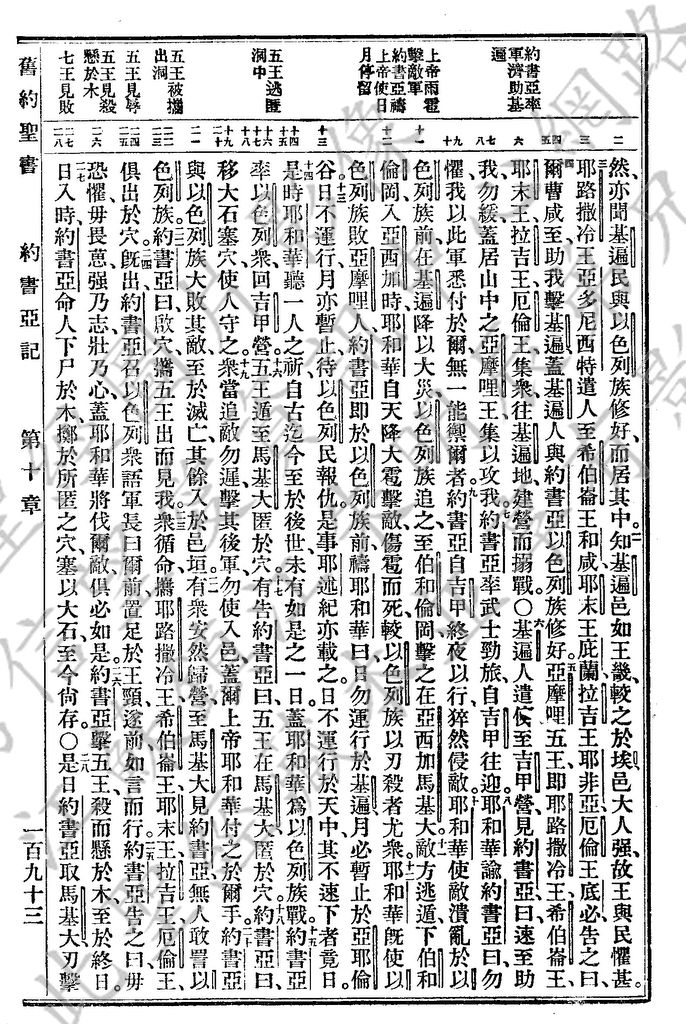 約書亞率
軍濟助基
遍
上帝雨雹
擊敵軍
約書亞禱
上帝使日
月停留
五王逃匿
洞中
五王被攜
出洞
五王見辱
五王見殺
懸於木
七王見敗
二
三
四五
六
七八
九十
十一
十二
十三
十四十五
十六十七
十八十九
二十
二一
二二二三
二四二五
二六
二七二八
然亦聞基遍民與以色列族修好而居其中知基遍邑如王畿較之於埃邑大人强故王與民懼甚
耶路撒冷王亞多尼西特遣人至希伯崙王和咸耶末王庇蘭拉吉王耶非亞厄倫王底必告之曰
爾曹咸至助我擊基遍蓋基遍人與約書亞以色列族修好亞摩哩五王即耶路撒冷王希伯崙王
耶末王拉吉王厄倫王集衆往基遍地建營而搦戰○基遍人遣使至吉甲營見約書亞曰速至助
我勿緩蓋居山中之亞摩哩王集以攻我約書亞率武士勁旅自吉甲往迎耶和華諭約書亞曰勿
懼我以此軍悉付於爾無一能禦爾者約書亞自吉甲終夜以行猝然侵敵耶和華使敵潰亂於以
色列族前在基遍降以大災以色列族追之至伯和倫岡擊之在亞西加馬基大敵方逃遁下伯和
倫岡入亞西加時耶和華自天降大雹擊敵傷雹而死較以色列族以刃殺者尤衆耶和華旣使以
色列族敗亞摩哩人約書亞即於以色列族前禱耶和華曰日勿運行於基遍月必暫止於亞耶倫
谷日不運行月亦暫止待以色列民報仇是事耶述紀亦載之日不運行於天中其不速下者竟日
是時耶和華聽一人之祈自古迄今至於後世未有如是之一日蓋耶和華爲以色列族戰約書亞
率以色列衆回吉甲營五王遁至馬基大匿於穴有告約書亞曰五王在馬基大匿於穴約書亞曰
移大石塞穴使人守之衆當追敵勿遲擊其後軍勿使入邑蓋爾上帝耶和華付之於爾手約書亞
與以色列族大敗其敵至於滅亡其餘入於邑垣有衆安然歸營至馬基大見約書亞無人敢詈以
色列族約書亞曰啟穴攜五王出而見我衆循命攜耶路撒冷王希伯崙王耶末王拉吉王厄倫王
俱出於穴旣出約書亞召以色列衆語軍長曰爾前置足於王頸遂前如言而行約書亞告之曰毋
恐懼毋畏葸强乃志壯乃心蓋耶和華將伐爾敵俱必如是約書亞擊五王殺而懸於木至於終日
日入時約書亞命人下尸於木擲於所匿之穴塞以大石至今尚存○是日約書亞取馬基大刃擊
舊約聖書　約書亞記　第十章　一百九十三